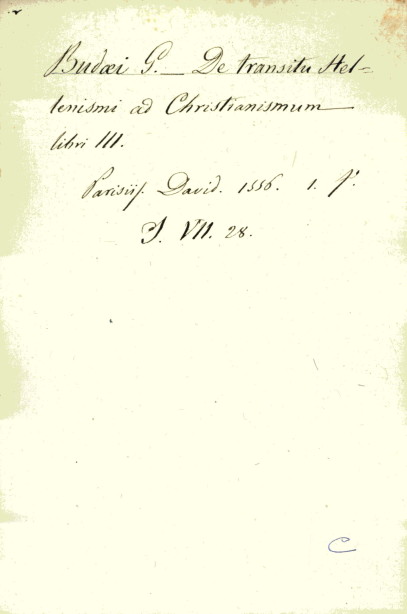 Budæi G. — De transitu Hel=
lenismi ad Christianismum
libri III.
Parisiis. David. 1556. 1. f.
J. VII. 28.
C